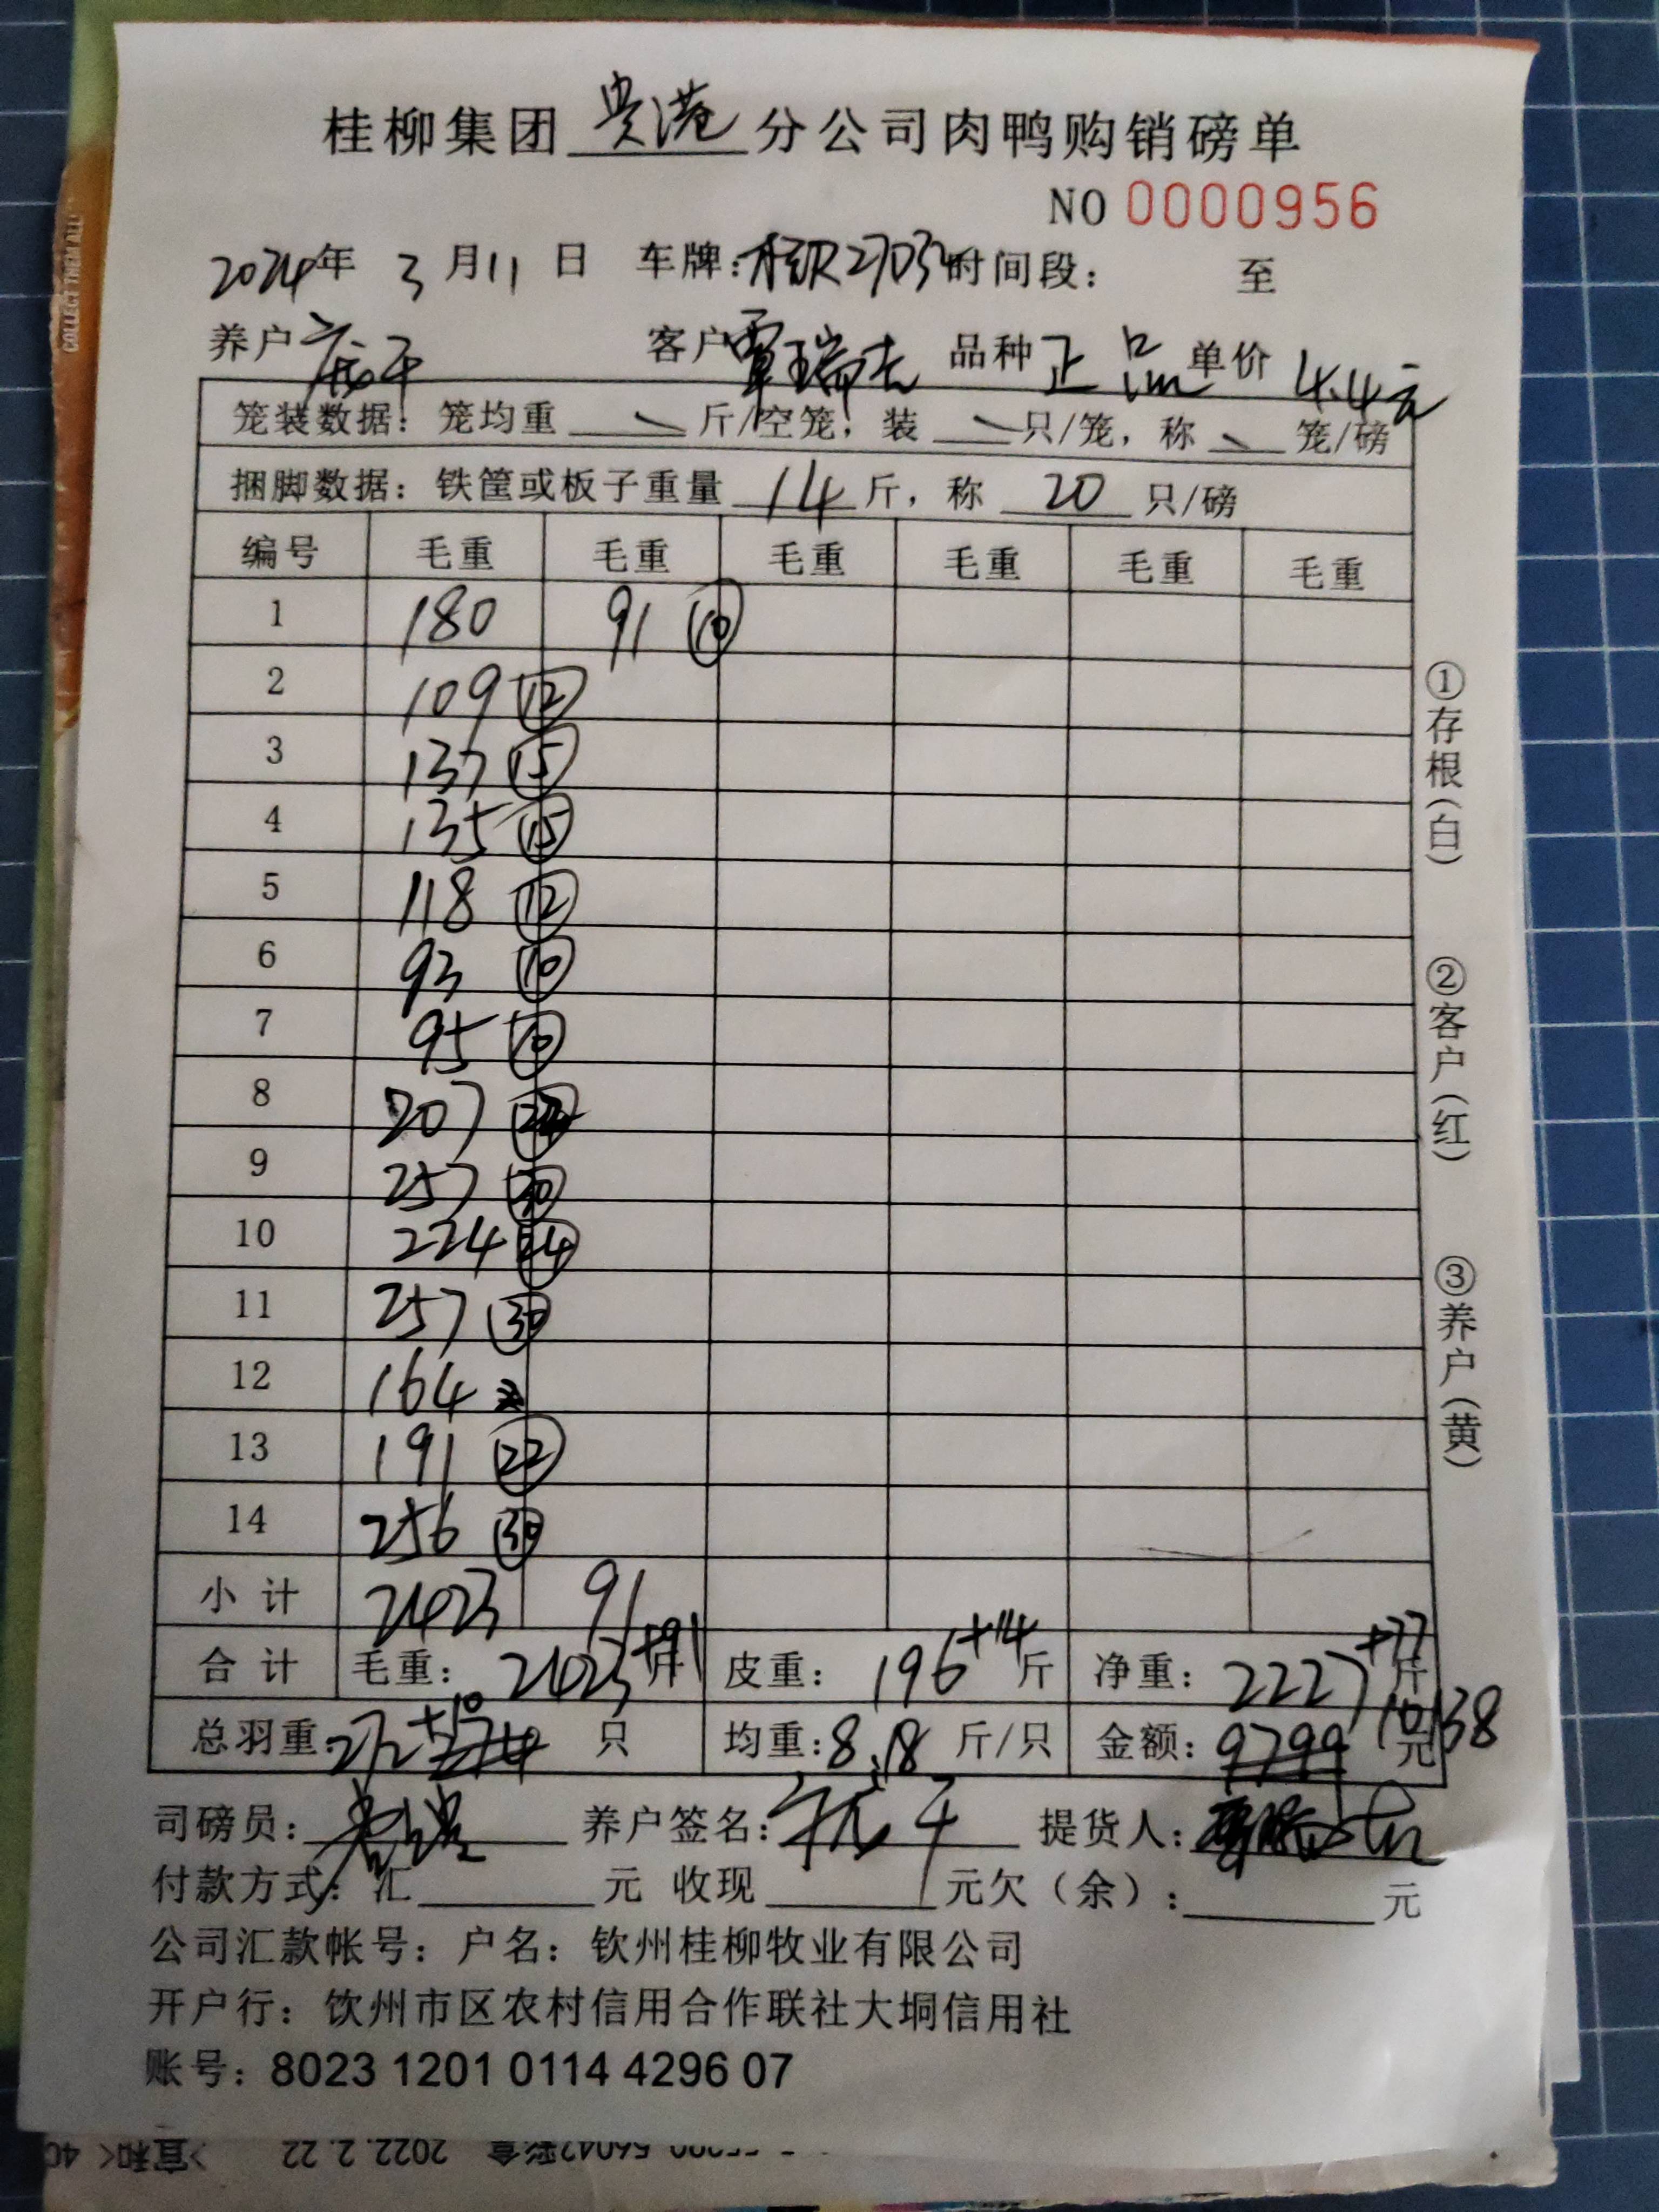 桂柳集团 贵港 分公司肉鸭购销磅单
NO 0000956
2024年 3 月 11 日 车牌: 时间段: 至
养户 客户 覃瑞 品种 正品 单价 4.4元
笼装数据: 笼均重 斤/空笼, 装 只/笼, 称 笼/磅
捆脚数据: 铁筐或板子重量 14 斤, 称 20 只/磅
编号 毛重 毛重 毛重 毛重 毛重 毛重
1 180 91 ⑩
2 109 ⑫
3 137 ⑮
4 135 ⑮
5 118 ⑫
6 93 ⑩
7 95 ⑩
8 207
9 257 ㉚
10 224 ㉔
11 257 ㉚
12 164
13 191 ㉒
14 256 ㉚
小 计 2423 91
合 计 毛重: 2423+91 斤 皮重: 196+14 斤 净重: 2227+77 斤
总羽重: 272+10 只 均重: 8.18 斤/只 金额: 9799 10138 元
司磅员: 养户签名: 提货人:
付款方式: 汇 元 收现 元欠(余): 元
公司汇款帐号: 户名: 钦州桂柳牧业有限公司
开户行: 饮州市区农村信用合作联社大垌信用社
账号: 8023 1201 0114 4296 07
①存根(白)
②客户(红)
③养户(黄)
COLLECT THEM ALL
2022.2.22